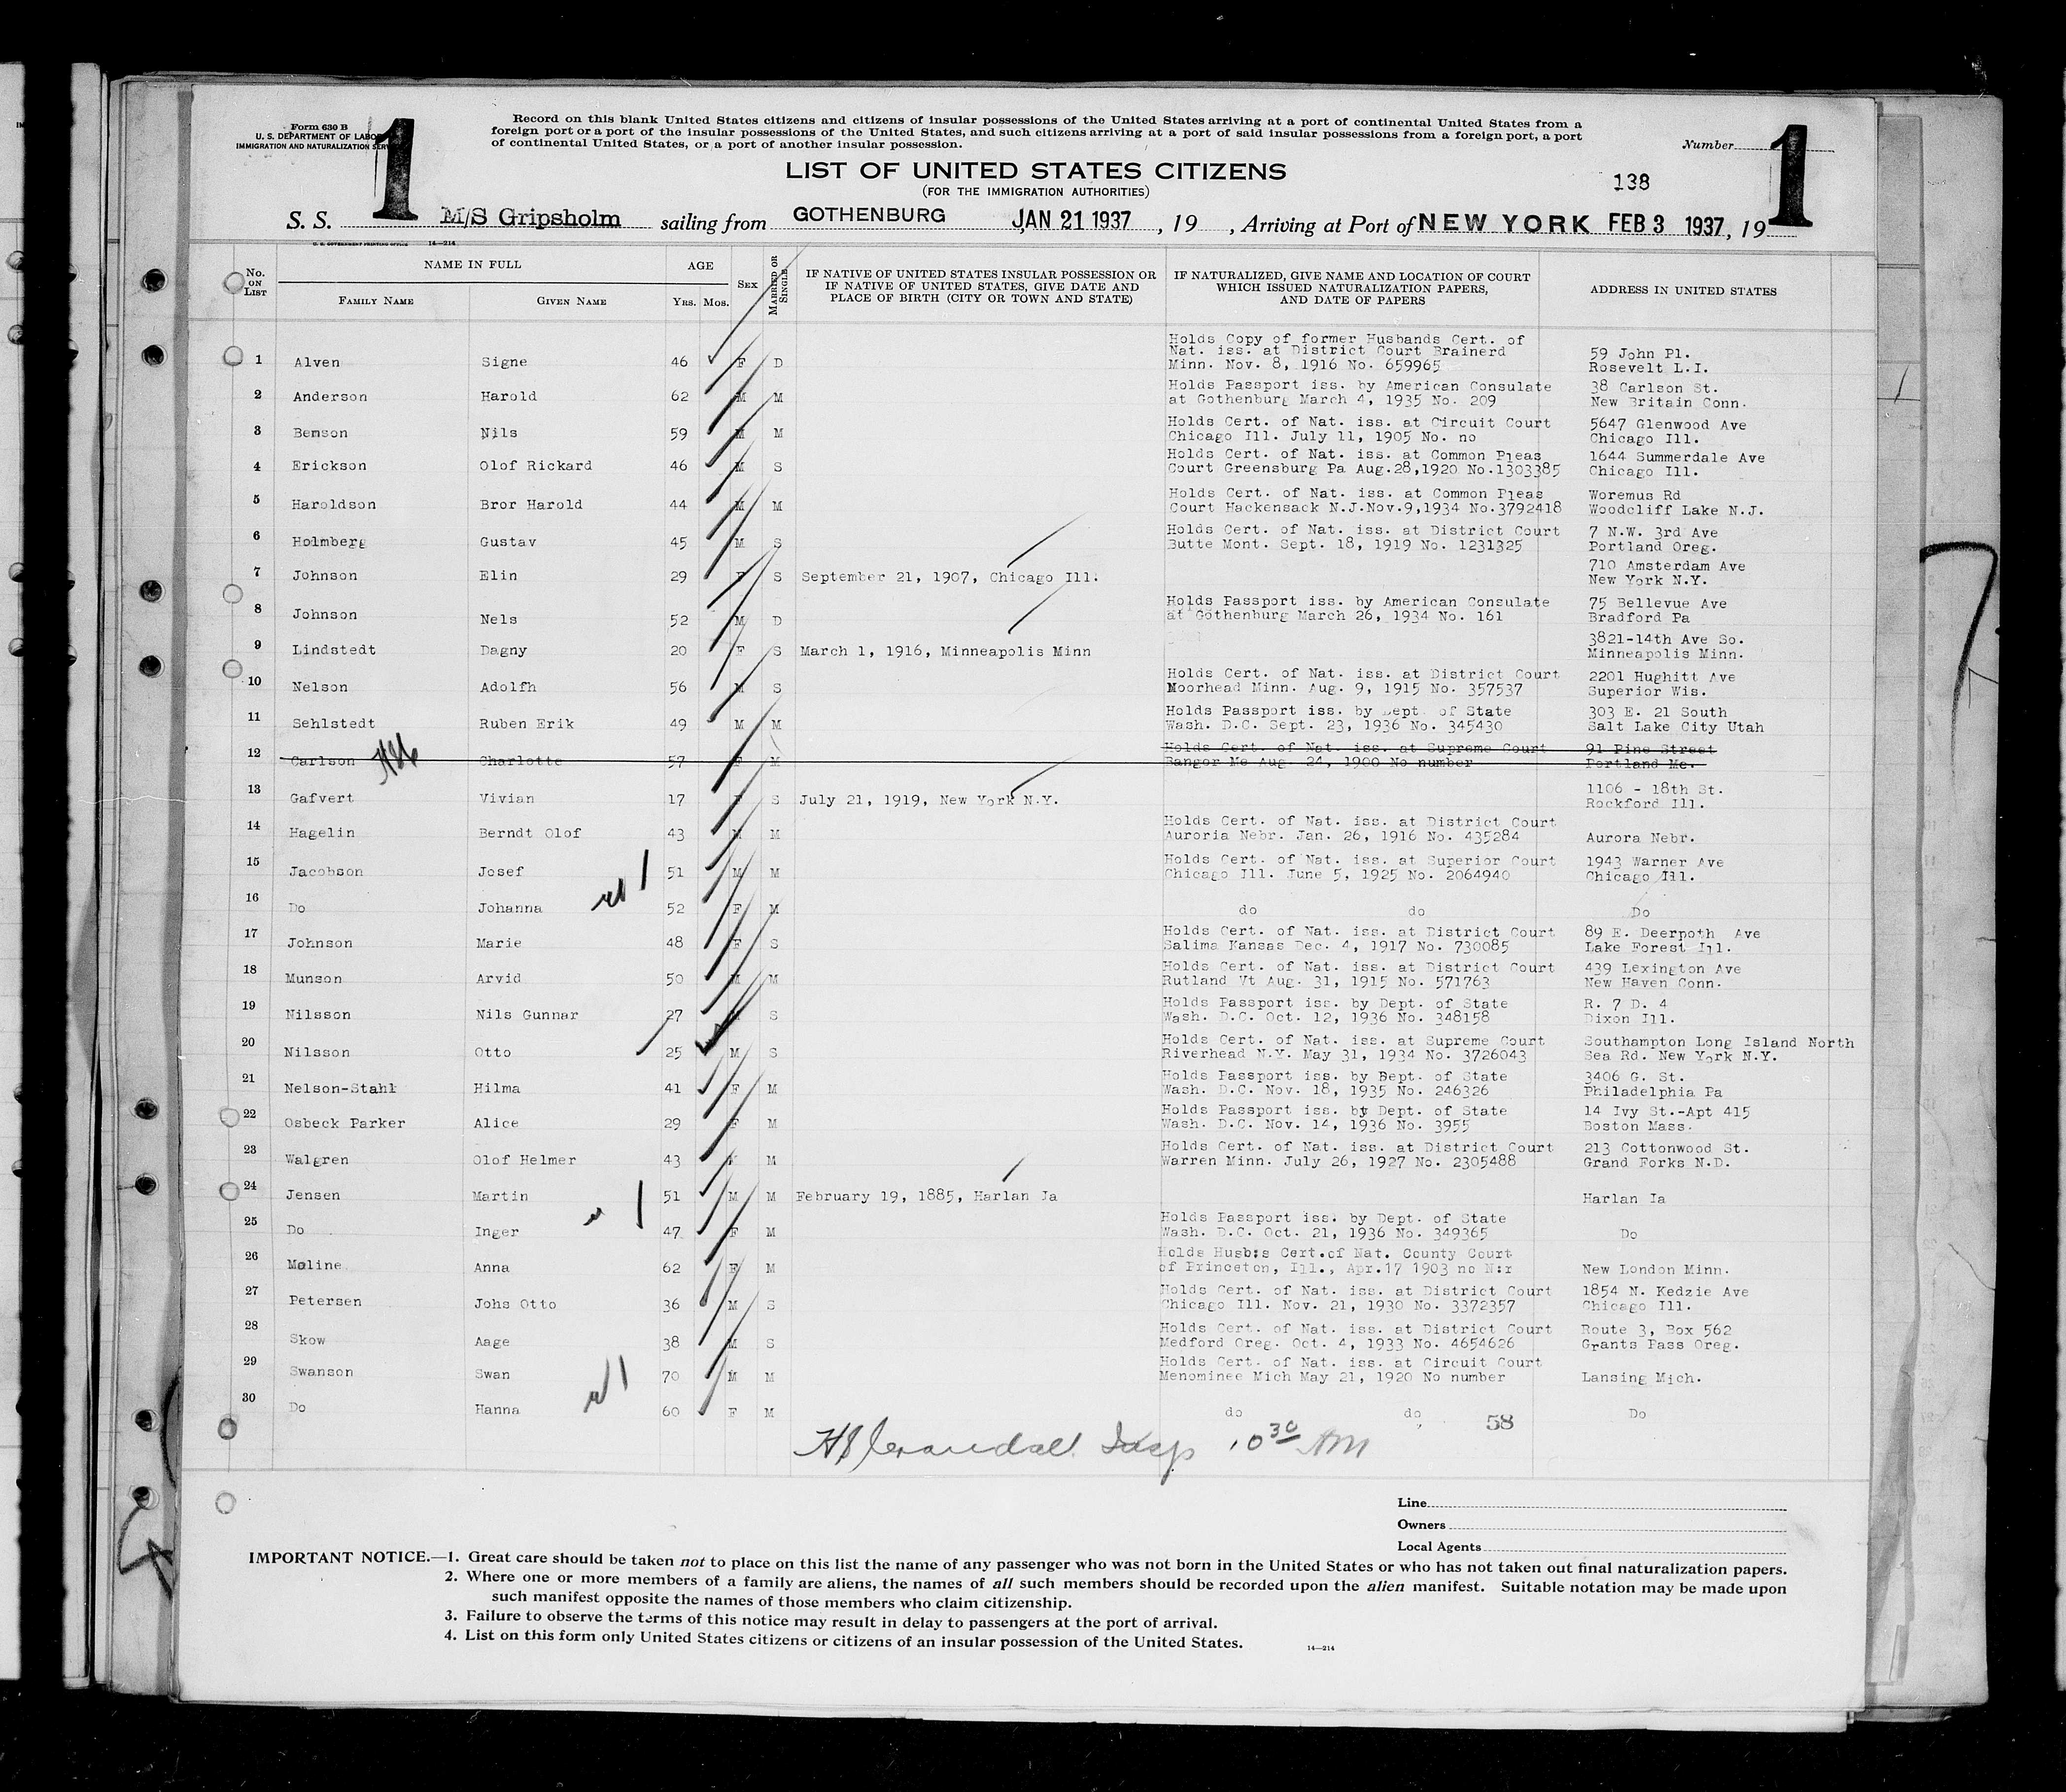 Form 630 B
U. S. DEPARTMENT OF LABOR
IMMIGRATION AND NATURALIZATION
1
Record on this blank United States citizens and citizens of insular possessions of the United States arriving at a port of continental United States from a
foreign port or a port of the insular possessions of the United States, and such citizens arriving at a port of said insular possessions from a foreign port, a port
of continental United States, or a port of another insular possession.
Number
1
LIST OF UNITED STATES CITIZENS
(FOR THE IMMIGRATION AUTHORITIES)
138
S. S. M/S Gripsholm sailing from GOTHENBURG JAN 21 1937, 19 , Arriving at Port of NEW YORK FEB 3 1937, 19
U. S. GOVERNMENT PRINTING OFFICE 14—214
No. ON LIST NAME IN FULL AGE SEX MARRIED OR SINGLE IF NATIVE OF UNITED STATES INSULAR POSSESSION OR IF NATIVE OF UNITED STATES, GIVE DATE AND PLACE OF BIRTH (CITY OR TOWN AND STATE) IF NATURALIZED, GIVE NAME AND LOCATION OF COURT WHICH ISSUED NATURALIZATION PAPERS, AND DATE OF PAPERS ADDRESS IN UNITED STATES
FAMILY NAME GIVEN NAME YRS. MOS.
Holds Copy of former Husbands Cert. of
Nat. iss. at District Court Brainerd 59 John Pl.
1 Alven Signe 46 F D Minn. Nov. 8, 1916 No. 659965 Rosevelt L.I.
Holds Passport iss. by American Consulate 38 Carlson St.
2 Anderson Harold 62 M M at Gothenburg March 4, 1935 No. 209 New Britain Conn.
Holds Cert. of Nat. iss. at Circuit Court 5647 Glenwood Ave
3 Bemson Nils 59 M M Chicago Ill. July 11, 1905 No. no Chicago Ill.
Holds Cert. of Nat. iss. at Common Pleas 1644 Summerdale Ave
4 Erickson Olof Rickard 46 M S Court Greensburg Pa Aug.28,1920 No.1303385 Chicago Ill.
Holds Cert. of Nat. iss. at Common Pleas Woremus Rd
5 Haroldson Bror Harold 44 M M Court Hackensack N.J.Nov.9,1934 No.3792418 Woodcliff Lake N.J.
Holds Cert. of Nat. iss. at District Court 7 N.W. 3rd Ave
6 Holmberg Gustav 45 M S Butte Mont. Sept. 18, 1919 No. 1231325 Portland Oreg.
710 Amsterdam Ave
7 Johnson Elin 29 F S September 21, 1907, Chicago Ill. New York N.Y.
Holds Passport iss. by American Consulate 75 Bellevue Ave
8 Johnson Nels 52 M D at Gothenburg March 26, 1934 No. 161 Bradford Pa
3821-14th Ave So.
9 Lindstedt Dagny 20 F S March 1, 1916, Minneapolis Minn Minneapolis Minn.
Holds Cert. of Nat. iss. at District Court 2201 Hughitt Ave
10 Nelson Adolfh 56 M S Moorhead Minn. Aug. 9, 1915 No. 357537 Superior Wis.
Holds Passport iss. by Dept. of State 303 E. 21 South
11 Sehlstedt Ruben Erik 49 M M Wash. D.C. Sept. 23, 1936 No. 345430 Salt Lake City Utah
Holds Cert. of Nat. iss. at Supreme Court 91 Pine Street
12 Carlson Charlotte 57 F M Bangor Me Aug. 24, 1900 No number Portland Me.
1106 - 18th St.
13 Gafvert Vivian 17 F S July 21, 1919, New York N.Y. Rockford Ill.
Holds Cert. of Nat. iss. at District Court
14 Hagelin Berndt Olof 43 M M Auroria Nebr. Jan. 26, 1916 No. 435284 Aurora Nebr.
Holds Cert. of Nat. iss. at Superior Court 1943 Warner Ave
15 Jacobson Josef 51 M M Chicago Ill. June 5, 1925 No. 2064940 Chicago Ill.
16 Do Johanna 52 F M do do Do
Holds Cert. of Nat. iss. at District Court 89 E. Deerpoth Ave
17 Johnson Marie 48 F S Salima Kansas Dec. 4, 1917 No. 730085 Lake Forest Ill.
Holds Cert. of Nat. iss. at District Court 439 Lexington Ave
18 Munson Arvid 50 M M Rutland Vt Aug. 31, 1915 No. 571763 New Haven Conn.
Holds Passport iss. by Dept. of State R. 7 D. 4
19 Nilsson Nils Gunnar 27 M S Wash. D.C. Oct. 12, 1936 No. 348158 Dixon Ill.
Holds Cert. of Nat. iss. at Supreme Court Southampton Long Island North
20 Nilsson Otto 25 M S Riverhead N.Y. May 31, 1934 No. 3726043 Sea Rd. New York N.Y.
Holds Passport iss. by Dept. of State 3406 G. St.
21 Nelson-Stahl Hilma 41 F M Wash. D.C. Nov. 18, 1935 No. 246326 Philadelphia Pa
Holds Passport iss. by Dept. of State 14 Ivy St.-Apt 415
22 Osbeck Parker Alice 29 F M Wash. D.C. Nov. 14, 1936 No. 3955 Boston Mass.
Holds Cert. of Nat. iss. at District Court 213 Cottonwood St.
23 Walgren Olof Helmer 43 M M Warren Minn. July 26, 1927 No. 2305488 Grand Forks N.D.
24 Jensen Martin 51 M M February 19, 1885, Harlan Ia Harlan Ia
Holds Passport iss. by Dept. of State
25 Do Inger 47 F M Wash. D.C. Oct. 21, 1936 No. 349365 Do
Holds Husb:s Cert.of Nat. County Court
26 Moline Anna 62 F M of Princeton, Ill., Apr.17 1903 no N:r New London Minn.
Holds Cert. of Nat. iss. at District Court 1854 N. Kedzie Ave
27 Petersen Johs Otto 36 M S Chicago Ill. Nov. 21, 1930 No. 3372357 Chicago Ill.
Holds Cert. of Nat. iss. at District Court Route 3, Box 562
28 Skow Aage 38 M S Medford Oreg. Oct. 4, 1933 No. 4654626 Grants Pass Oreg.
Holds Cert. of Nat. iss. at Circuit Court
29 Swanson Swan 70 M M Menominee Mich May 21, 1920 No number Lansing Mich.
30 Do Hanna 60 F M do do 58 Do
Insp 10 30 AM
Line
Owners
Local Agents
IMPORTANT NOTICE.—1. Great care should be taken not to place on this list the name of any passenger who was not born in the United States or who has not taken out final naturalization papers.
2. Where one or more members of a family are aliens, the names of all such members should be recorded upon the alien manifest. Suitable notation may be made upon
such manifest opposite the names of those members who claim citizenship.
3. Failure to observe the terms of this notice may result in delay to passengers at the port of arrival.
4. List on this form only United States citizens or citizens of an insular possession of the United States.
14—214